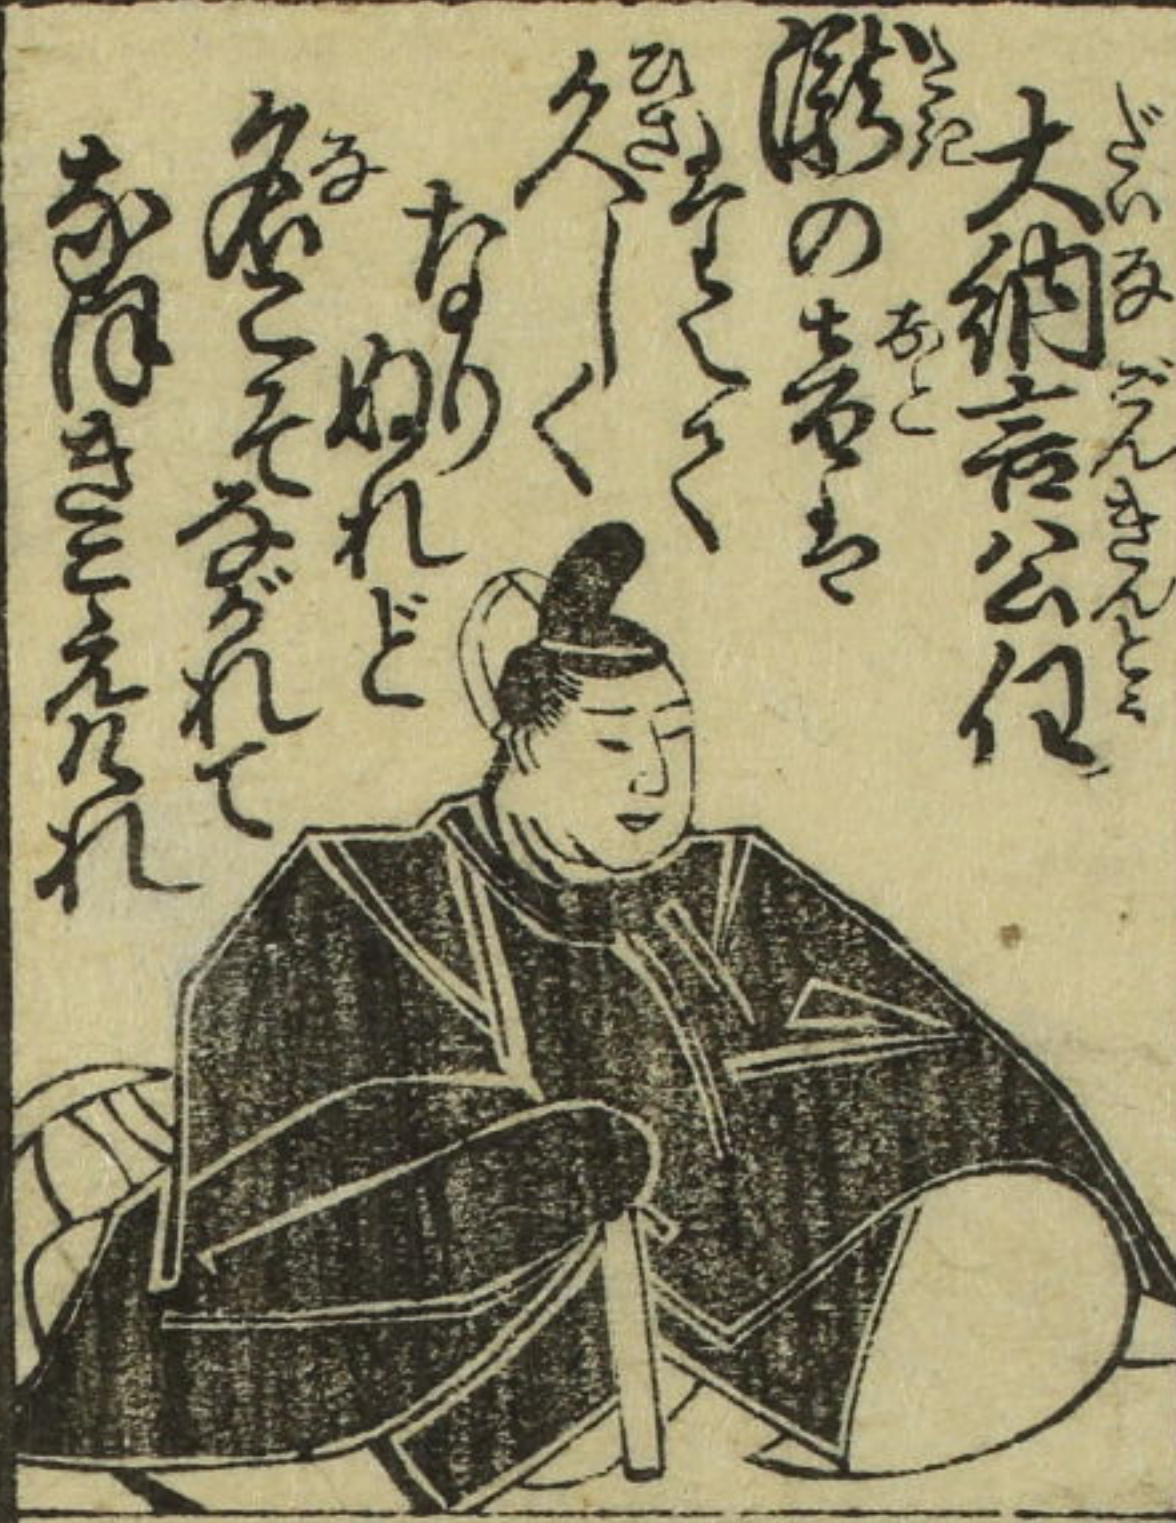 だいなごんきんとう
大納言公任
たき おと
瀧の音は
たえて
ひさ
久しく
なり
ぬれど
な
名こそながれて
なほきこえけれ